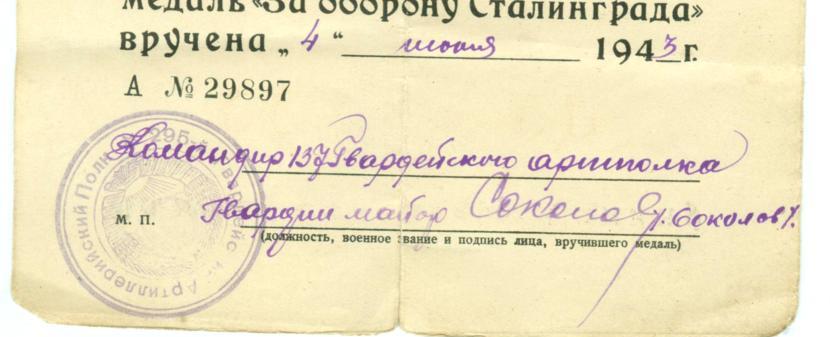 медаль «За оборону Сталинграда»
вручена „ 4 “ июня 1943 г.
А № 29897
Командир 157 Гвардейского артполка
М. П. Гвардии майор Соколов /. Соколов /.
(должность, военное звание и подпись лица, вручившего медаль)
Артиллерийский Полк